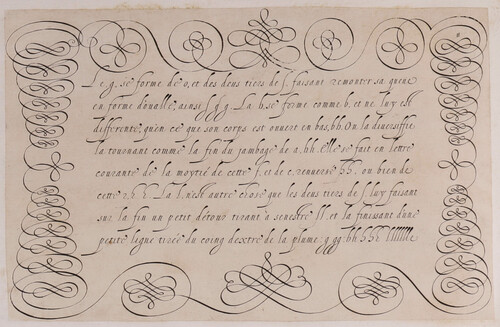 Le g, se forme de o, et des deus tiers de s. faisant remonter sa queue
en forme d'oualle, ainsi ſ g g. La h, se forme comme b, et ne luy est
differente, qu'en ce que son corps est ouuert en bas, bh. On la diuersifie
la tournant comme la fin du jambage de a. hh. Elle se fait en lettre
courante de la moytié de cette ſ. et de c. renuerse hh. ou bien de
cette La l. n'est autre chose que les deus tiers de ſ. luy faisant
sur la fin un petit détour tirant à senestre ll. et la finissant d'une
petite ligne tirée du coing dextre de la plume. g gg. hh